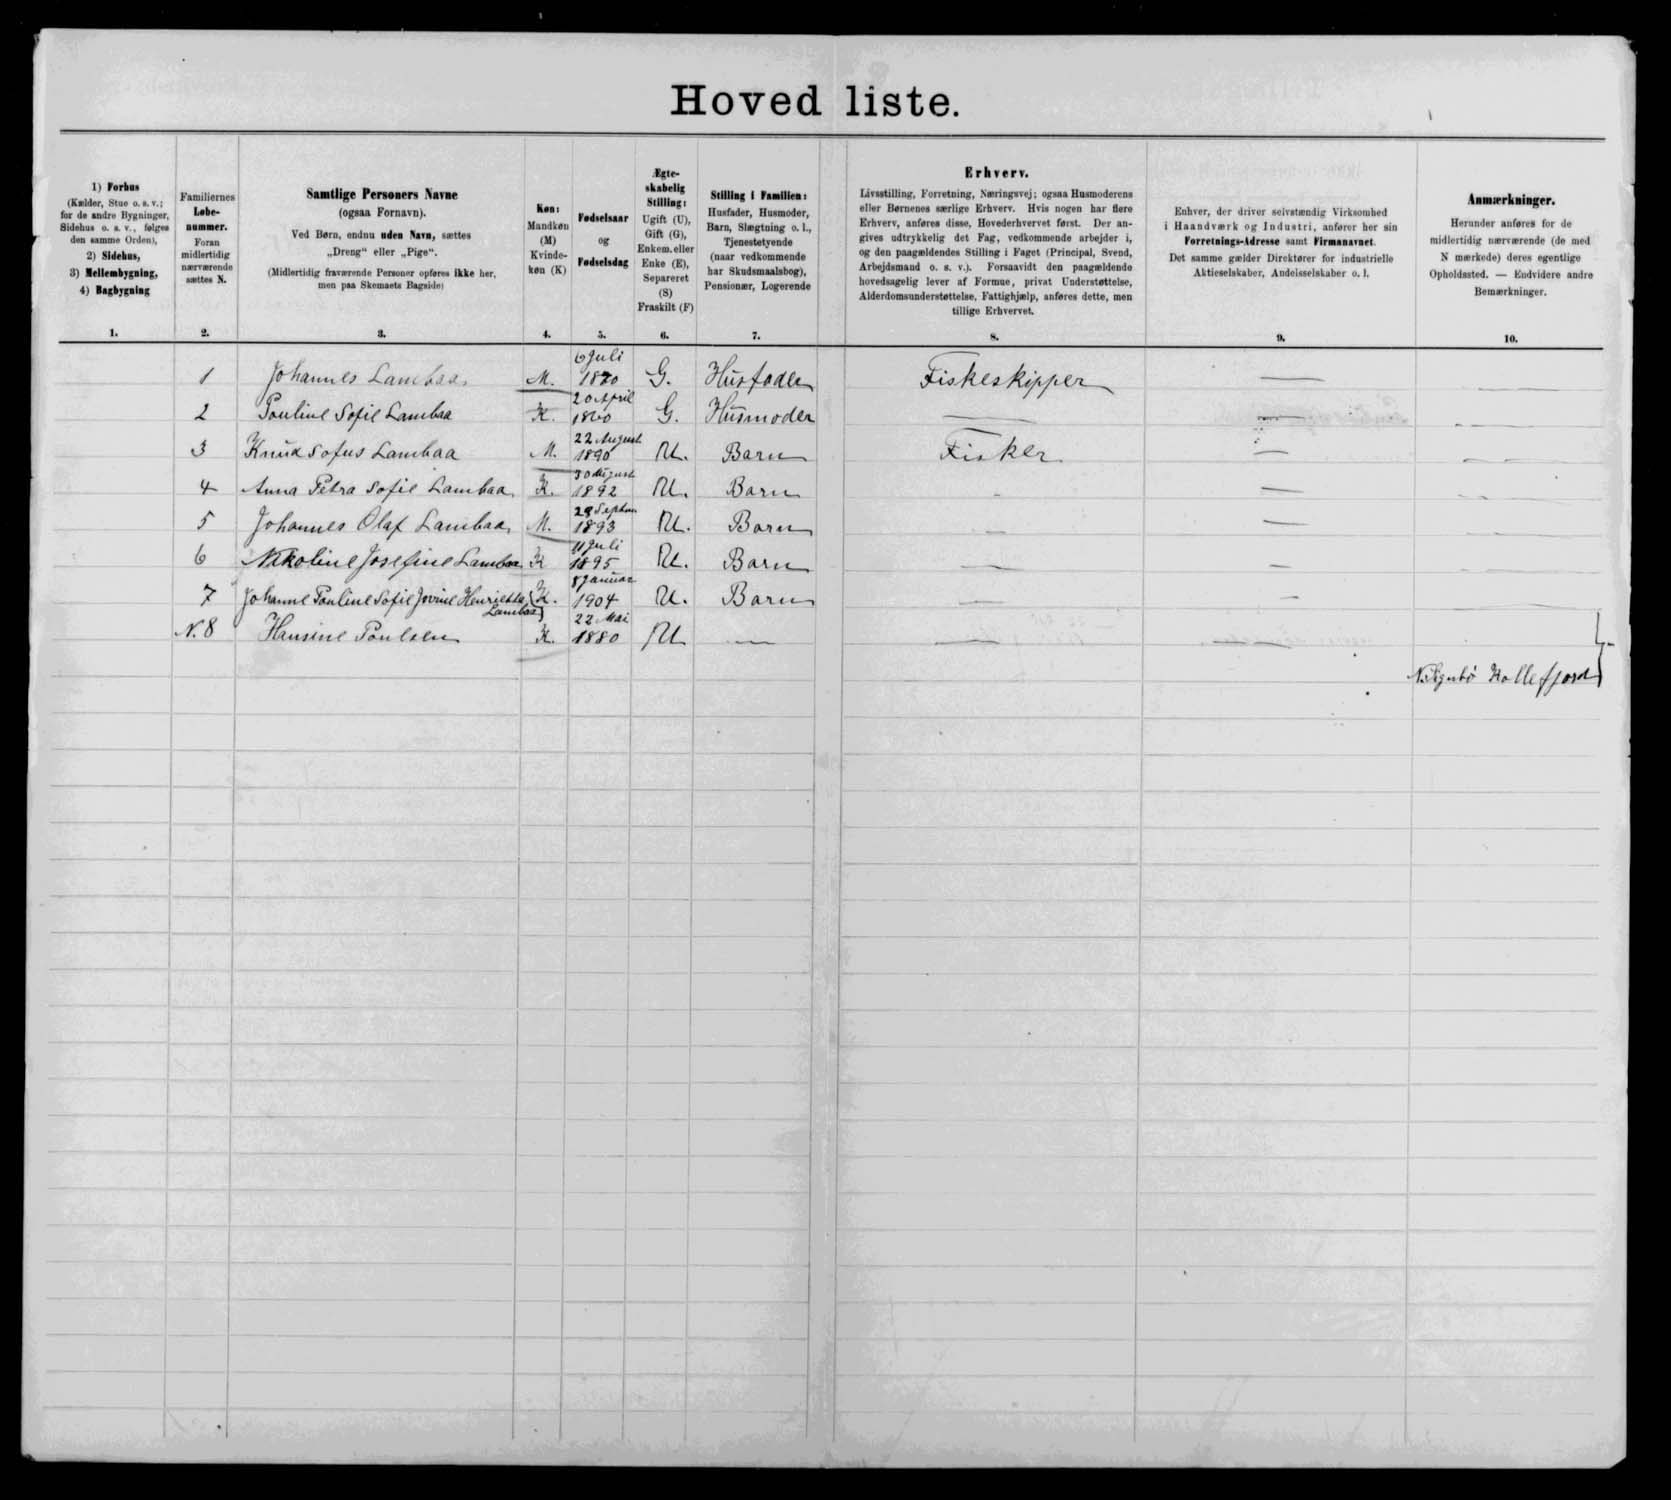 Hoved liste.
1) Forhus
(Kælder, Stue o. s. v.;
for de andre Bygninger,
Sidehus o. s. v., følges
den samme Orden),
2) Sidehus,
3) Mellembygning,
4) Bagbygning
1.
Familiernes
Løbe-
nummer.
Foran
midlertidig
nærværende
sættes N.
2.
Samtlige Personers Navne
(ogsaa Fornavn).
Ved Børn, endnu uden Navn, sættes
„Dreng“ eller „Pige“.
(Midlertidig fraværende Personer opføres ikke her,
men paa Skemaets Bagside)
3.
Køn:
Mandkøn
(M)
Kvinde-
køn (K)
4.
Fødselsaar
og
Fødselsdag
5.
Ægte-
skabelig
Stilling:
Ugift (U),
Gift (G),
Enkem. eller
Enke (E),
Separeret
(S)
Fraskilt (F)
6.
Stilling i Familien:
Husfader, Husmoder,
Barn, Slægtning o. l.,
Tjenestetyende
(naar vedkommende
har Skudsmaalsbog),
Pensionær, Logerende
7.
Erhverv.
Livsstilling, Forretning, Næringsvej; ogsaa Husmoderens
eller Børnenes særlige Erhverv. Hvis nogen har flere
Erhverv, anføres disse, Hovederhvervet først. Der an-
gives udtrykkelig det Fag, vedkommende arbejder i,
og den paagældendes Stilling i Faget (Principal, Svend,
Arbejdsmand o. s. v.). Forsaavidt den paagældende
hovedsagelig lever af Formue, privat Understøttelse,
Alderdomsunderstøttelse, Fattighjælp, anføres dette, men
tillige Erhvervet.
8.
Enhver, der driver selvstændig Virksomhed
i Haandværk og Industri, anfører her sin
Forretnings-Adresse samt Firmanavnet.
Det samme gælder Direktører for industrielle
Aktieselskaber, Andelsselskaber o. l.
9.
Anmærkninger.
Herunder anføres for de
midlertidig nærværende (de med
N mærkede) deres egentlige
Opholdssted. — Endvidere andre
Bemærkninger.
10.
1 Johannes Lambaa M. 6 Juli 18 0 G. Husfader Fiskeskipper —
2 Pouline Sofie Lambaa K. 20 April 1860 G. Husmoder — —
3 Knud Sofus Lambaa M. 22 August 1890 U. Barn Fisker —
4 Anna Petra Sofie Lambaa K. 30 August 1892 U. Barn —
5 Johannes Olaf Lambaa M. Septbr 1893 U. Barn — —
6 Nikoline Josefine Lambaa K 11 Juli 1895 U. Barn — —
7 Johanne Pouline Sofie Jovine Henriette Lambaa K. 8 Januar 1904 U. Barn — —
N. 8 Hansine Poulsen K. 22 Mai 1880 U — — —
Kollefjord